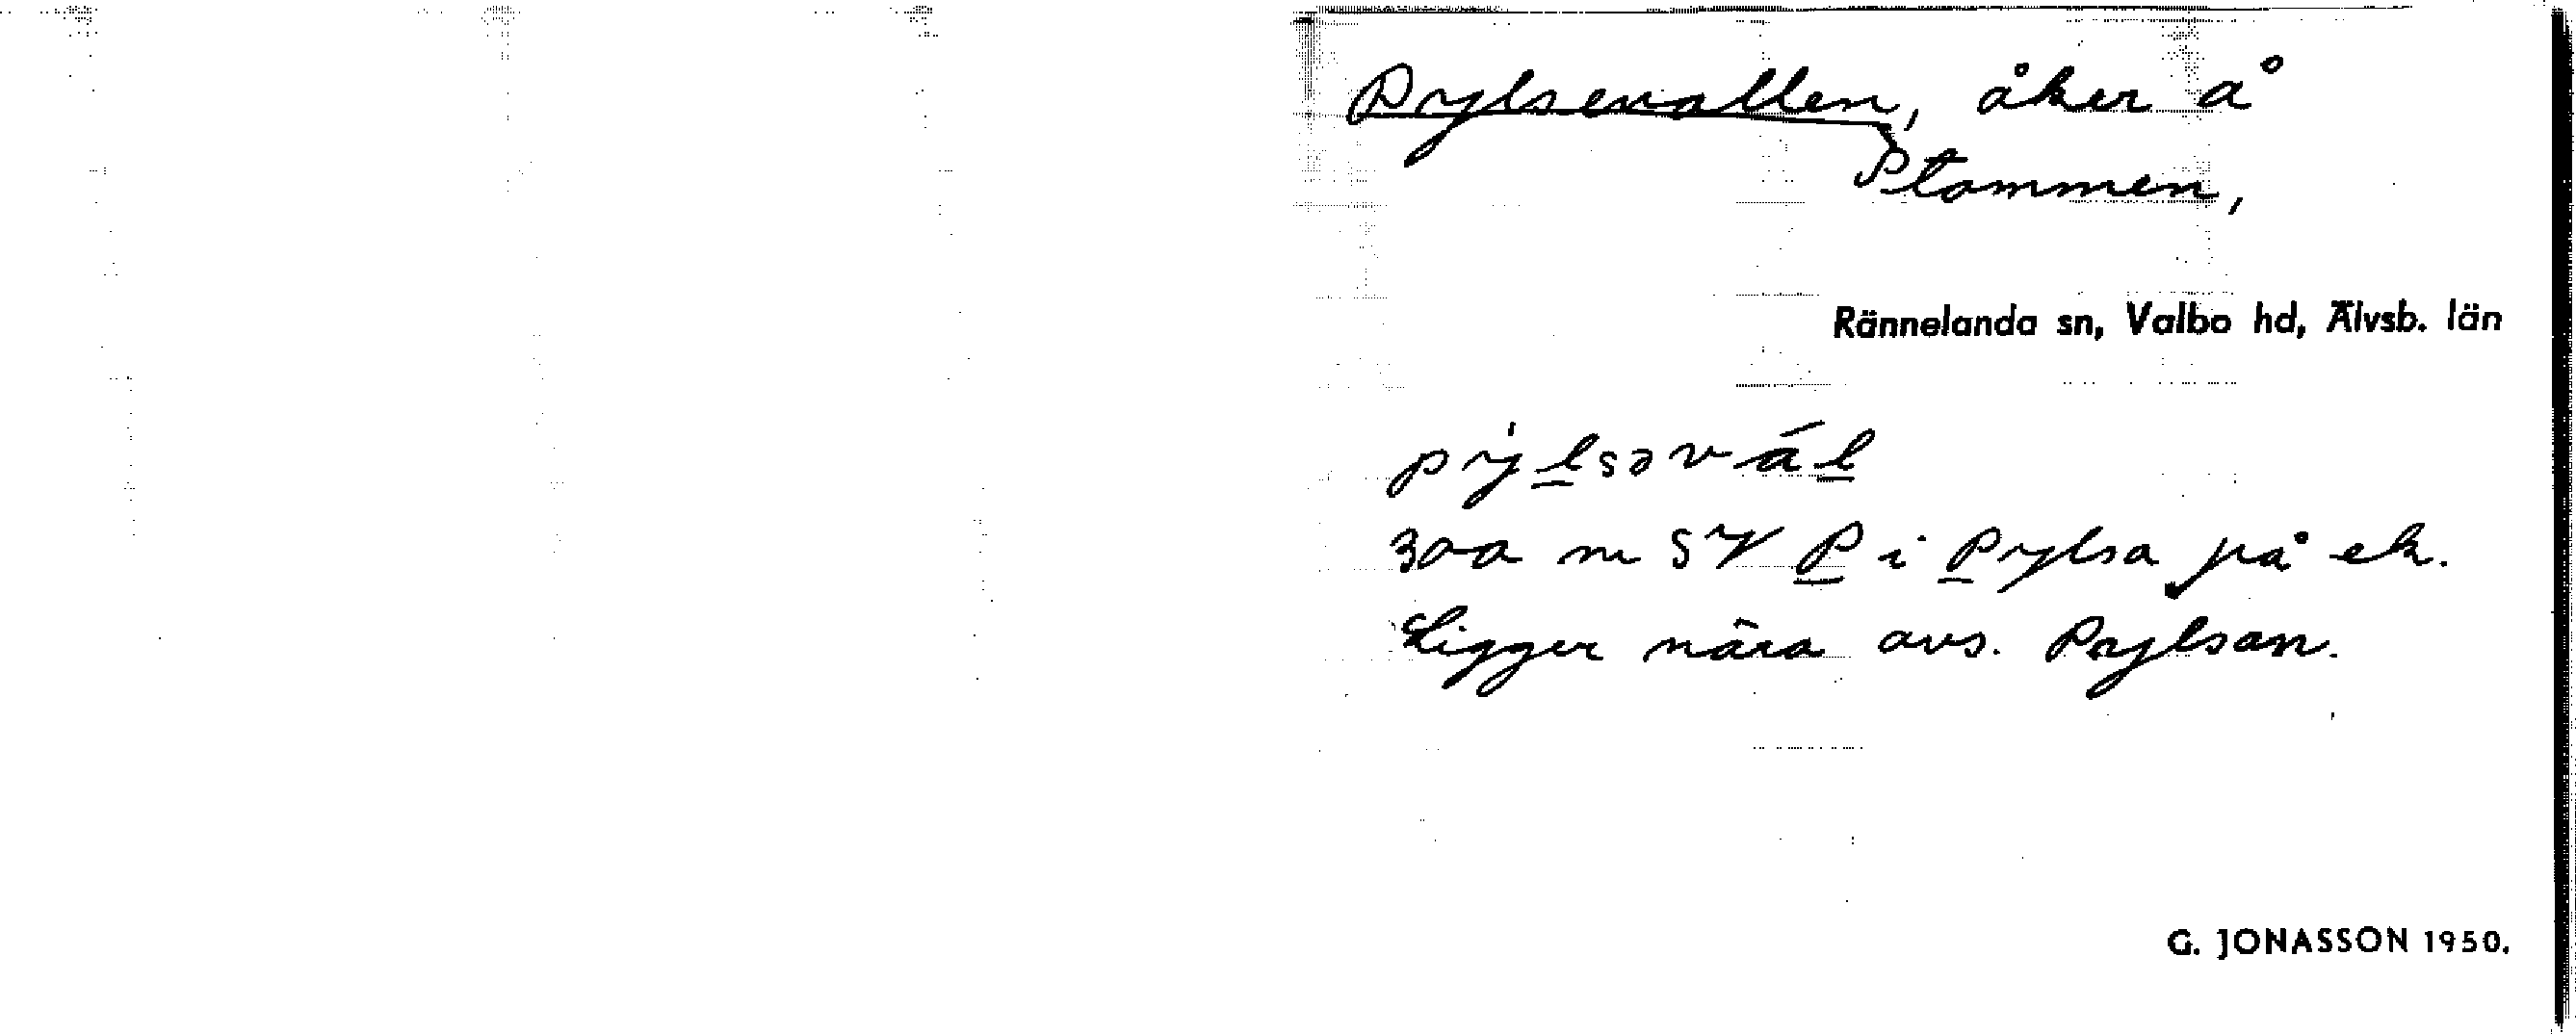 Pylsevallen, åker å
Stommen,
Rännelanda sn, Valbo hd, Älvsb. län
pýlsəvál
300 m SV P i Pylsa på ek.
Ligger nära avs. Pylsan.
G. JONASSON 1950.